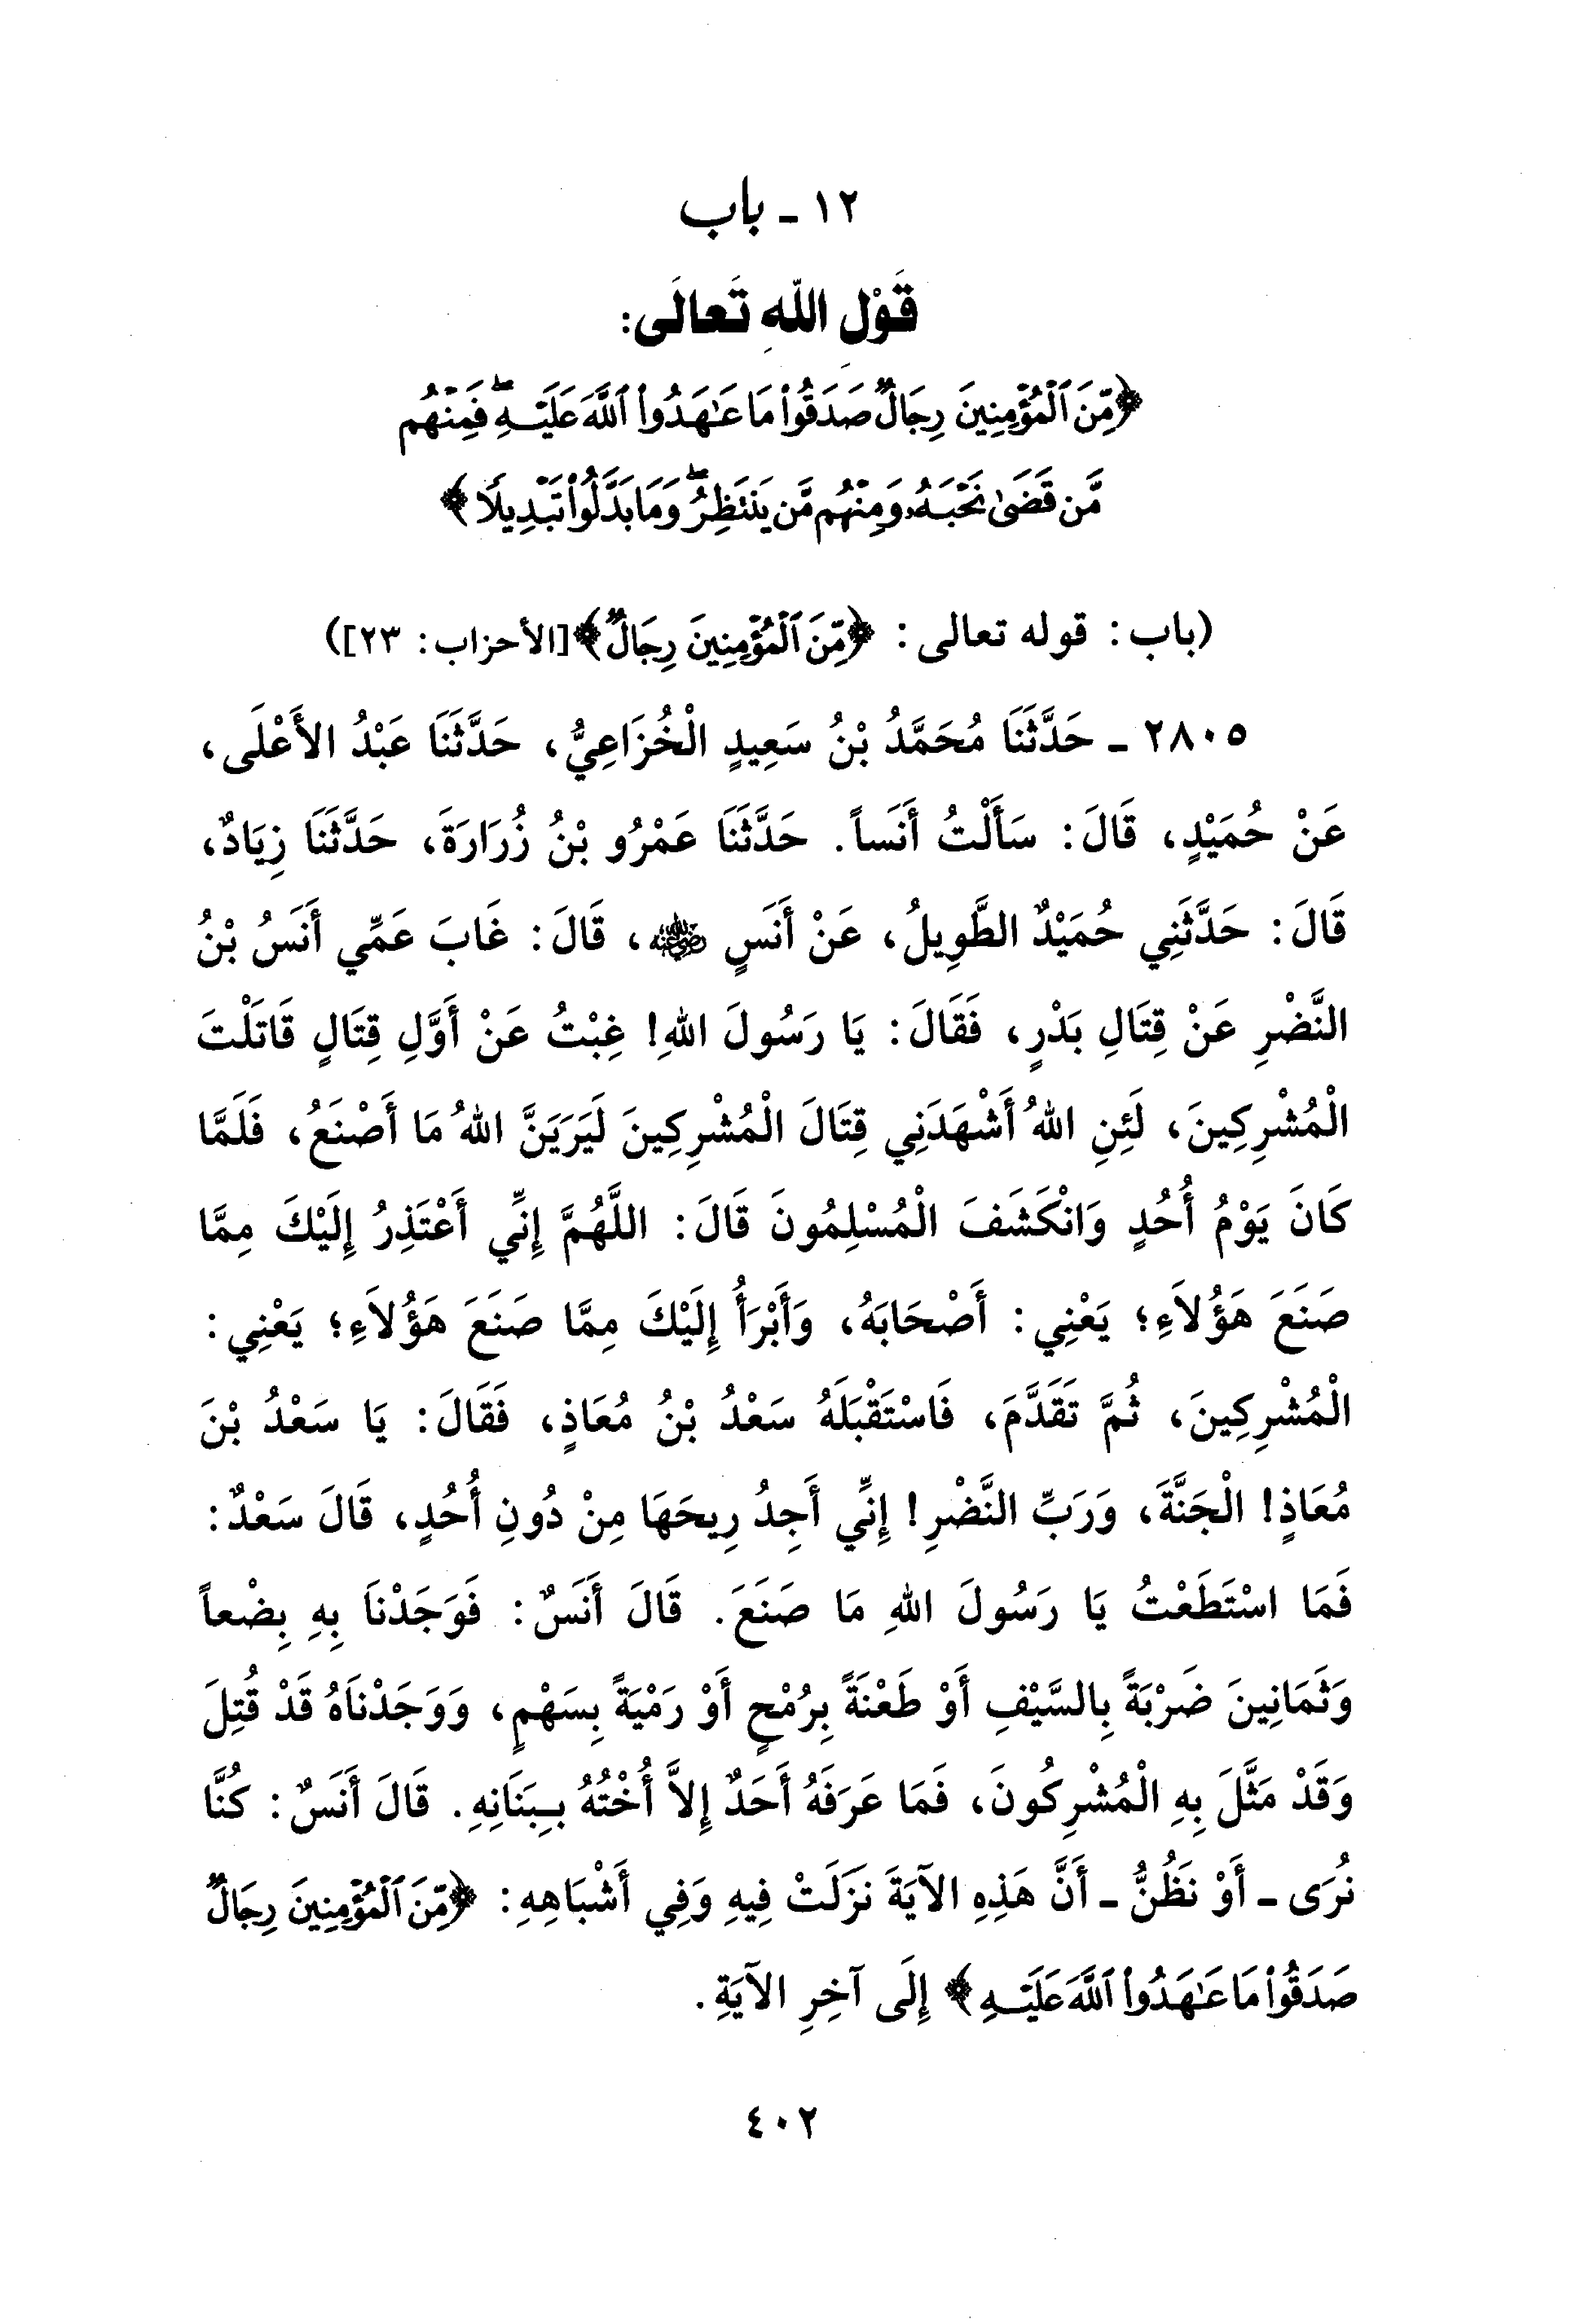 ١٢ ـ باب
قَوْلِ اللهِ تَعالَى:
﴿مِّنَ ٱلْمُؤْمِنِينَ رِجَالٌ صَدَقُوا۟ مَا عَـٰهَدُوا۟ ٱللَّهَ عَلَيْهِ ۖ فَمِنْهُم
مَّن قَضَىٰ نَحْبَهُۥ وَمِنْهُم مَّن يَنتَظِرُ ۖ وَمَا بَدَّلُوا۟ تَبْدِيلًا﴾
(باب: قوله تعالى: ﴿مِّنَ ٱلْمُؤْمِنِينَ رِجَالٌ﴾ [الأحزاب: ٢٣])
٢٨٠٥ ـ حَدَّثَنَا مُحَمَّدُ بْنُ سَعِيدٍ الْخُزَاعِيُّ، حَدَّثَنَا عَبْدُ الأَعْلَى،
عَنْ حُمَيْدٍ، قَالَ: سَأَلْتُ أَنَساً. حَدَّثَنَا عَمْرُو بْنُ زُرَارَةَ، حَدَّثَنَا زِيَادٌ،
قَالَ: حَدَّثَنِي حُمَيْدٌ الطَّوِيلُ، عَنْ أَنَسٍ رضي الله عنه، قَالَ: غَابَ عَمِّي أَنَسُ بْنُ
النَّضْرِ عَنْ قِتَالِ بَدْرٍ، فَقَالَ: يَا رَسُولَ اللهِ! غِبْتُ عَنْ أَوَّلِ قِتَالٍ قَاتَلْتَ
الْمُشْرِكِينَ، لَئِنِ اللهُ أَشْهَدَنِي قِتَالَ الْمُشْرِكِينَ لَيَرَيَنَّ اللهُ مَا أَصْنَعُ، فَلَمَّا
كَانَ يَوْمُ أُحُدٍ وَانْكَشَفَ الْمُسْلِمُونَ قَالَ: اللَّهُمَّ إِنِّي أَعْتَذِرُ إِلَيْكَ مِمَّا
صَنَعَ هَؤُلاَءِ؛ يَعْنِي: أَصْحَابَهُ، وَأَبْرَأُ إِلَيْكَ مِمَّا صَنَعَ هَؤُلاَءِ؛ يَعْنِي:
الْمُشْرِكِينَ، ثُمَّ تَقَدَّمَ، فَاسْتَقْبَلَهُ سَعْدُ بْنُ مُعَاذٍ، فَقَالَ: يَا سَعْدُ بْنَ
مُعَاذٍ! الْجَنَّةَ، وَرَبِّ النَّضْرِ! إِنِّي أَجِدُ رِيحَهَا مِنْ دُونِ أُحُدٍ، قَالَ سَعْدٌ:
فَمَا اسْتَطَعْتُ يَا رَسُولَ اللهِ مَا صَنَعَ. قَالَ أَنَسٌ: فَوَجَدْنَا بِهِ بِضْعاً
وَثَمَانِينَ ضَرْبَةً بِالسَّيْفِ أَوْ طَعْنَةً بِرُمْحٍ أَوْ رَمْيَةً بِسَهْمٍ، وَوَجَدْنَاهُ قَدْ قُتِلَ
وَقَدْ مَثَّلَ بِهِ الْمُشْرِكُونَ، فَمَا عَرَفَهُ أَحَدٌ إِلاَّ أُخْتُهُ بِبَنَانِهِ. قَالَ أَنَسٌ: كُنَّا
نُرَى ـ أَوْ نَظُنُّ ـ أَنَّ هَذِهِ الآيَةَ نَزَلَتْ فِيهِ وَفِي أَشْبَاهِهِ: ﴿مِّنَ ٱلْمُؤْمِنِينَ رِجَالٌ
صَدَقُوا۟ مَا عَـٰهَدُوا۟ ٱللَّهَ عَلَيْهِ﴾ إِلَى آخِرِ الآيَةِ.
٤٠٢